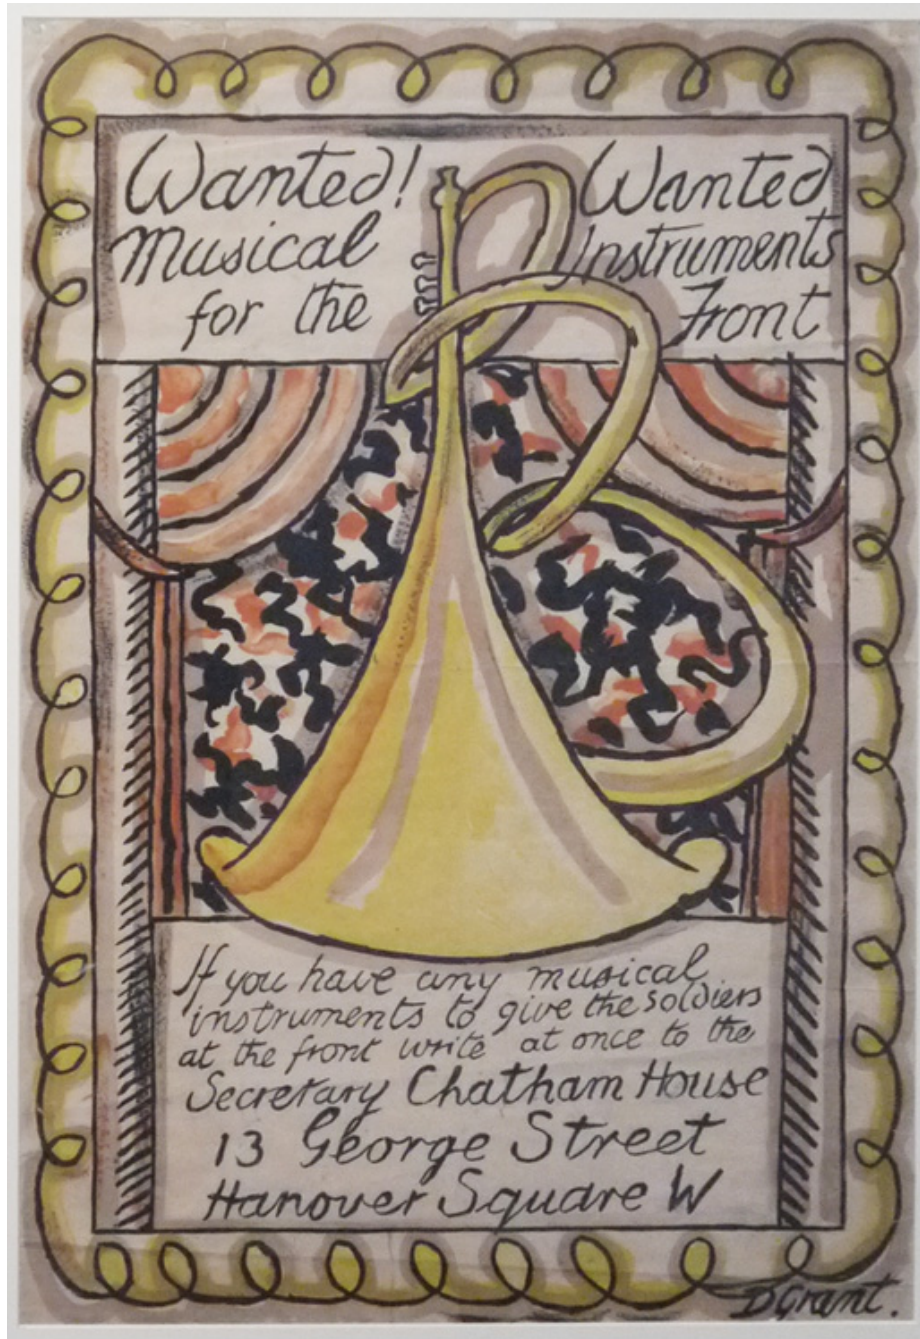 Wanted! Wanted
Musical Instruments
for the Front
If you have any musical
instruments to give the soldiers
at the front write at once to the
Secretary Chatham House
13 George Street
Hanover Square W
D Grant.